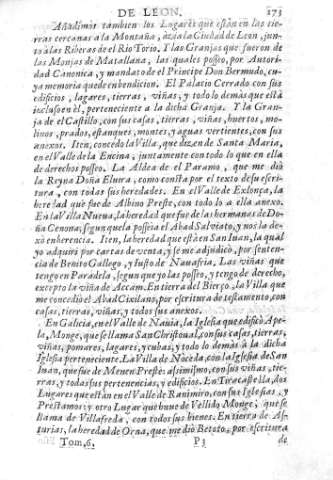 DE LEON. 173
Añadimos tambien los Lugares que están en las tie-
rras cercanas a la Montaña, àzà la Ciudad de Leon, jun-
to à las Riberas de el Rio Torio, Y las Granjas que fueron de
las Monjas de Matallana, las quales posseo, por Autori-
dad Canonica, y mandato de el Principe Don Bermudo, cu-
ya memoria quede en bendicion. El Palacio Cerrado con sus
edificios, lagares, tierras, viñas, y todo lo demàs que allà
incluso en èl, perteneciente a la dicha Granja. Y la Gran-
ja de el Castillo, con sus casas, tierras, viñas, huertos, mo-
linos, prados, estanques, montes, y aguas vertientes, con sus
anexos. Iten, concedo la Villa, que dizen de Santa Maria,
en el Valle de la Encina, juntamente con todo lo que en ella
de derechos posseo. La Aldea de el Paramo, que me diò
la Reyna Doña Elvira, como consta por el texto de su escri-
tura, con todas sus heredades. En el Valle de Exlonça, la
heredad què fue de Albino Preste, con todo lo a ella anexo.
En la Villa Nueva, la heredad que fue de las hermanas de Do-
ña Cenona, segun que la posseìa el Abad Salviato, y nos la de-
xò en herencia. Iten, la heredad que està en San Iuan, la qual
yo adquirì por cartas de venta, y se me adjudicò, por senten-
cia de Benito Gallego, y Iusto de Nanafria. Las viñas que
tengo en Paradela, segun que yo las posseo, y tengo de derecho,
excepto la viña de Accam. En tierra del Bierço. La Villa que
me concediò el Abad Cixilano, por escritura de testamento, con
casas, tierras, viñas, y todos sus anexos.
En Galicia, en el Valle de Nauia, la Iglesia que edificò Ape-
la, Monge, que se llama San Christoual, con sus casas, tierras,
viñas, pomares, lagares, y cubas, y todo lo demàs à la dicha
Iglesia perteneciente. La Villa de Nòceda, con la Iglesia de San
Iuan, que fue de Menen Preste: assimismo, con sus viñas, tie-
rras, y todas sus pertenencias, y edificios. En Tiracastella, dos
Lugares que estàn en el Valle de Ranimiro, con sus Iglesias, y
Prestamos: y otro Lugar que huuo de Vellido Monge, que se
llama de Villafreda, con todos sus bienes. En tierra de As-
turias, la heredad de Orna, que me diò Betoto, por escritura
Tom. 6. P3 de